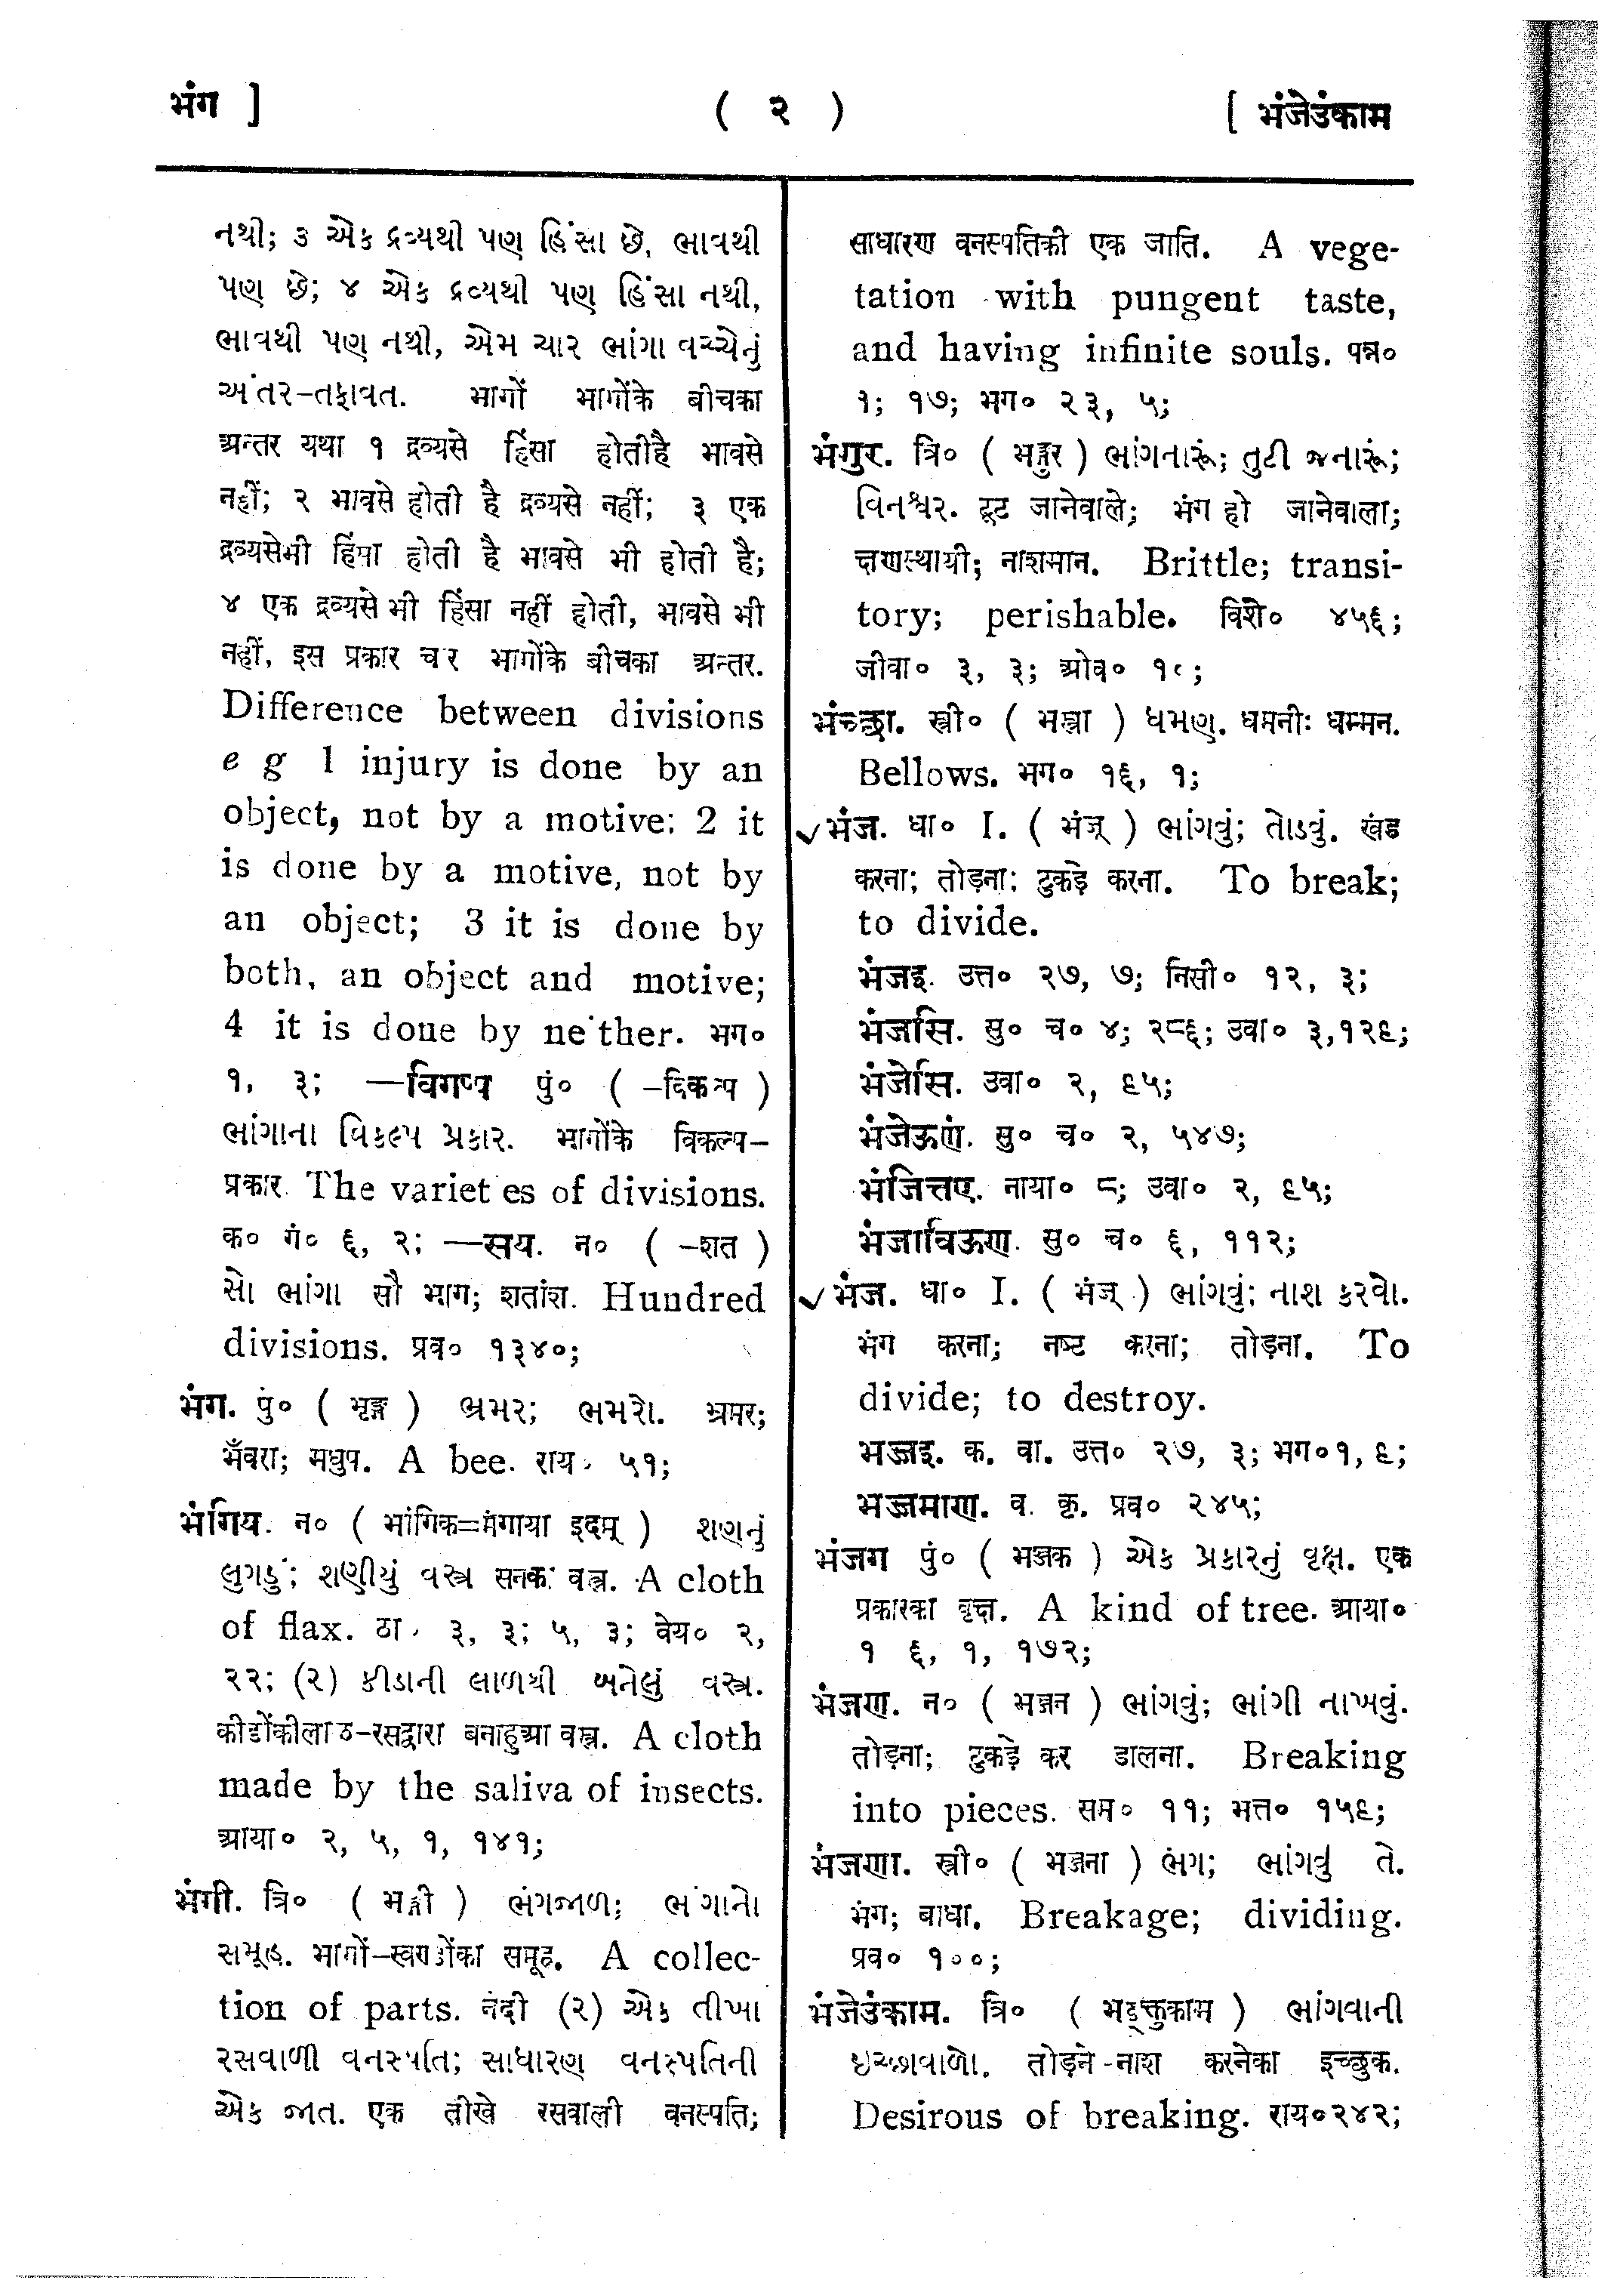 भंग ]
( २ )
[ भंजेउंकाम
નથી; ૩ એક દ્રવ્યથી પણ હિંસા છે, ભાવથી
પણ છે; ૪ એક દ્રવ્યથી પણ હિંસા નથી,
ભાવથી પણ નથી, એમ ચાર ભાંગા વચ્ચેનું
અંતર-તફાવત. भागों भागोंके बीचका
अन्तर यथा १ द्रव्यसे हिंसा होतीहै भावसे
नहीं; २ भावसे होती है द्रव्यसे नहीं; ३ एक
द्रव्यसेभी हिंसा होती है भावसे भी होती है;
४ एक द्रव्यसे भी हिंसा नहीं होती, भावसे भी
नहीं, इस प्रकार च र भागोंके बीचका अन्तर.
Difference between divisions
e g 1 injury is done by an
object, not by a motive; 2 it
is done by a motive, not by
an object; 3 it is done by
both, an object and motive;
4 it is done by ne'ther. भग०
१, ३; —विगप्प पुं० ( -विकल्प )
ભાંગાના વિકલ્પ પ્રકાર. भागोंके विकल्प-
प्रकार. The variet es of divisions.
क० गं० ६, २; —सय. न० ( -शत )
સો ભાંગા सौ भाग; शतांश. Hundred
divisions. प्रव० १३४०;
भंग. पुं० ( भृङ्ग ) ભ્રમર; ભમરો. भ्रमर;
भँवरा; मधुप. A bee. राय० ५१;
भंगिय. न० ( भांगिक=भंगाया इदम् ) શણનું
લુગડું; શણીયું વસ્ત્ર सनका वस्त्र. A cloth
of flax. ठा० ३, ३; ५, ३; वेय० २,
२२; (२) કીડાની લાળથી બનેલું વસ્ત્ર.
कीडोंकीलाठ-रसद्वारा बनाहुआ वस्त्र. A cloth
made by the saliva of insects.
आया० २, ५, १, १४१;
भंगी. त्रि० ( भङ्गी ) ભંગજાળ; ભંગાનો
સમૂહ. भागों-खण्डोंका समूह. A collec-
tion of parts. नंदी (२) એક તીખા
રસવાળી વનસ્પતિ; સાધારણ વનસ્પતિની
એક જાત. एक तीखे रसवाली वनस्पति;
साधारण वनस्पतिकी एक जाति. A vege-
tation with pungent taste,
and having infinite souls. पन्न०
१; १७; भग० २३, ५;
भंगुर. त्रि० ( भङ्गुर ) ભાંગનારૂં; તુટી જનારૂં;
વિનશ્વર. टूट जानेवाले; भंग हो जानेवाला;
क्षणस्थायी; नाशमान. Brittle; transi-
tory; perishable. विशे० ४५६;
जीवा० ३, ३; ओव०
भंच्छा. स्त्री० ( भस्त्रा ) ધમણ. धमनी; धम्मन.
Bellows. भग० १६, १;
✓भंज. धा० I. ( भंज् ) ભાંગવું; તોડવું. खंड
करना; तोड़ना; टुकड़े करना. To break;
to divide.
भंजइ. उत्त० २७, ७; निसी० १२, ३;
भंजसि. सु० च० ४; २८६; उवा० ३,१२९;
भंजेसि. उवा० २, ९५;
भंजेऊणं. सु० च० २, ५४७;
भंजित्तए. नाया० ८; उवा० २, ९५;
भंजाविऊण. सु० च० ६, ११२;
✓भंज. धा० I. ( भंज् ) ભાંગવું; નાશ કરવો.
भंग करना; नष्ट करना; तोड़ना. To
divide; to destroy.
भज्जइ. क. वा. उत्त० २७, ३; भग०१, ९;
भज्जमाण. व. कृ. प्रव० २४५;
भंजग पुं० ( भञ्जक ) એક પ્રકારનું વૃક્ષ. एक
प्रकारका वृक्ष. A kind of tree. आया०
१ ६, १, १७२;
भंजण. न० ( भञ्जन ) ભાંગવું; ભાંગી નાખવું.
तोड़ना; टुकड़े कर डालना. Breaking
into pieces. सम० ११; भत्त० १५९;
भंजणा. स्त्री० ( भञ्जना ) ભંગ; ભાંગવું તે.
भंग; बाधा. Breakage; dividing.
प्रव० १००;
भंजेउंकाम. त्रि० ( भङ्क्तुकाम ) ભાંગવાની
ઇચ્છાવાળો. तोड़ने-नाश करनेका इच्छुक.
Desirous of breaking. राय०२४२;